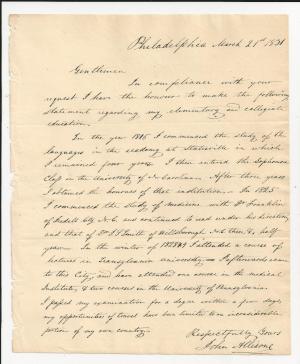 Philadelphia March 21st 1831
Gentlemen
In compliance with your
request I have the honour to make the following
statement regarding my elementary and collegiate
education.
In the year 1816 I commenced the study of the
languages in the academy at Statesville in which
I remained four years. I then entered the Sophomore
Class in the University of N. Carolina. After three years
I obtained the honours of that institution. In 1825
I commenced the study of medicine with Dr Franklin
of Iredell City N.C. and continued to read under his direction,
and that of Dr Smith of Hillsborough N.C. then &
year. In the winter of I attended a course of
lectures in Transylvania university. I afterwards came
to this City, and have attended one course in the medical
Institute, & two courses in the University of Pennsylvania.
I passed my examination for a degree within a few days,
my opportunities of travel have been limited to an inconsiderable
portion of my own country.
Respectfully Yours
John Allison